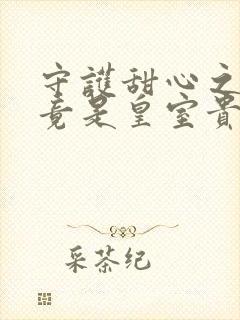 守護甜心之
竟是皇室貴
采茶纪